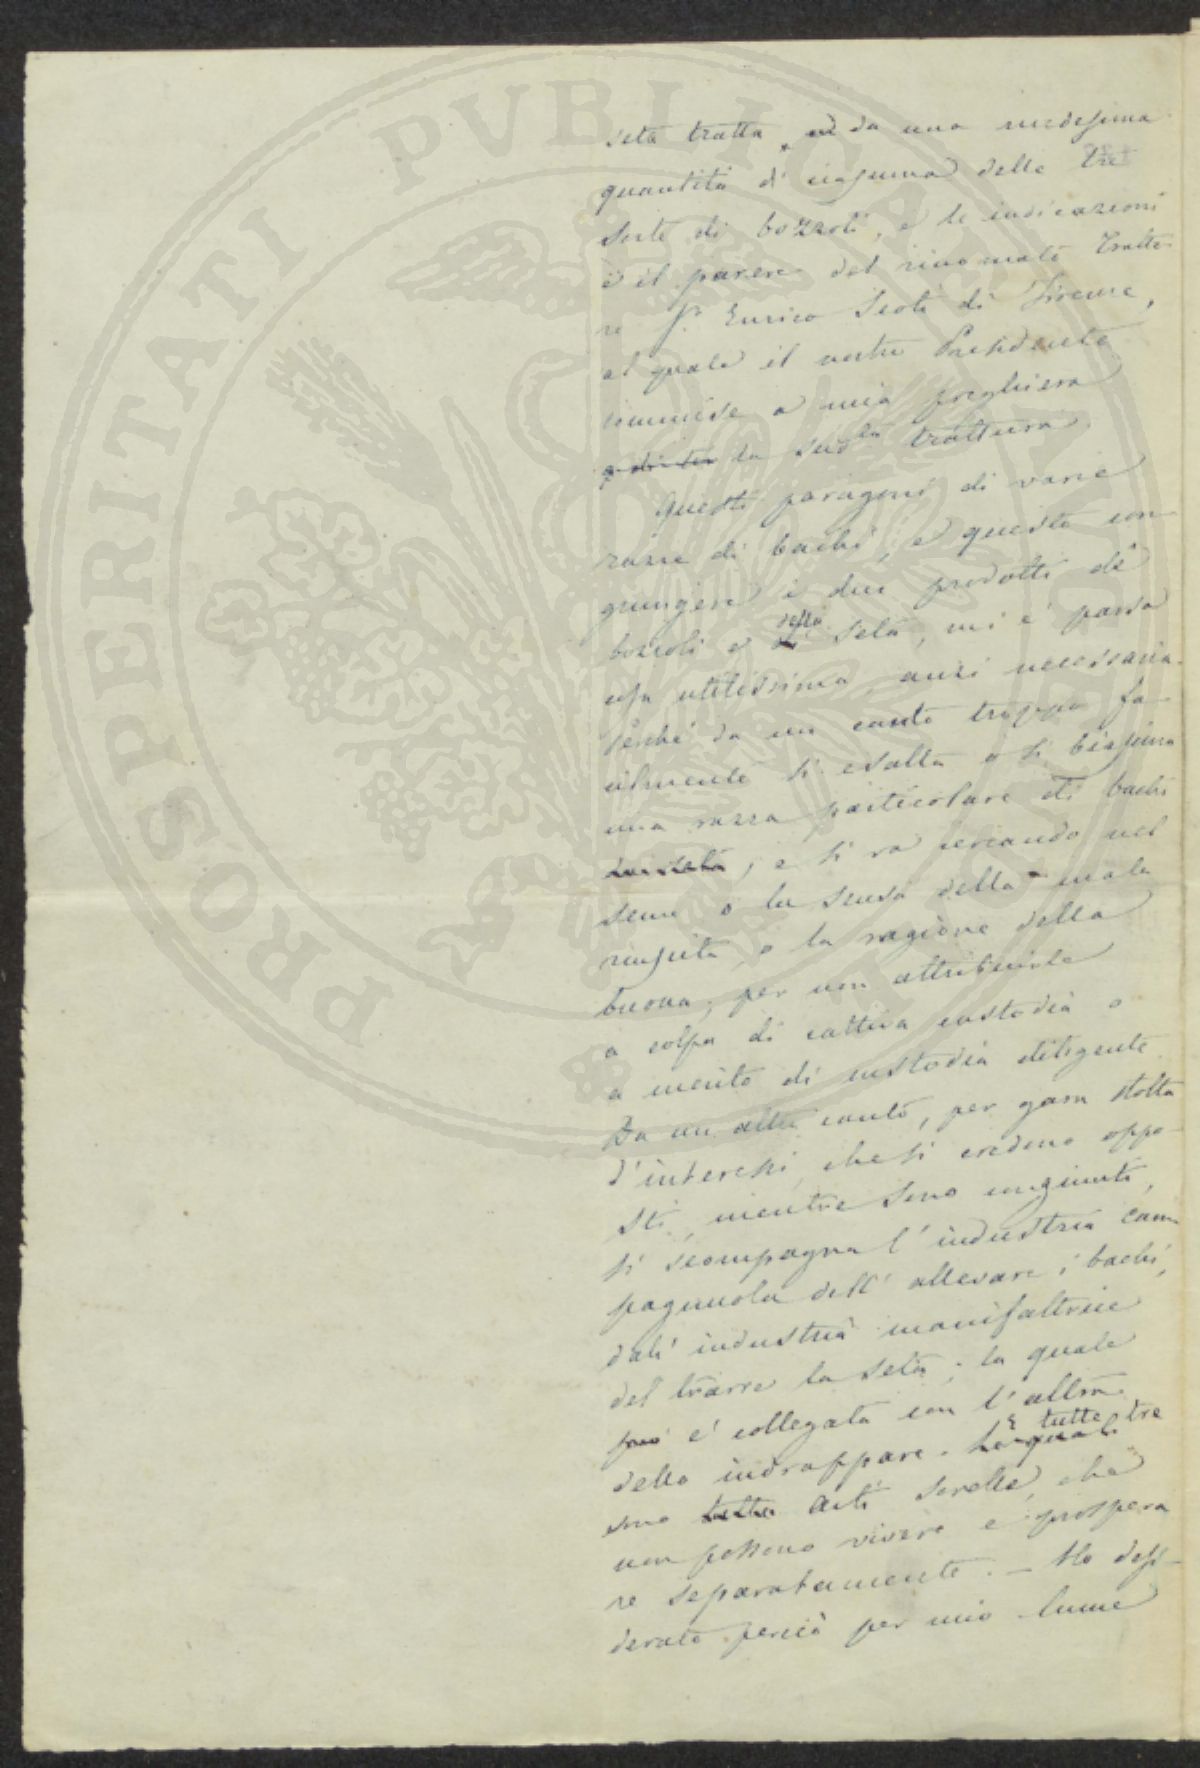 PROSPERITATI PVBLICAE AVGENDAE
seta tratta, da una medesima
quantità di ciascuna delle tre
sorte di bozzoli, e le indicazioni
e il parere del rinomato Tratto-
re Sr. Enrico Scoti di Firenze,
al quale il nostro Presidente
commise a mia preghiera
la sudta trattura.
Questi paragoni di varie
razze di bachi, e questo con-
giungere i due prodotti de'
bozzoli e della seta, mi è parsa
cosa utilissima, anzi necessaria.
Perché da un canto troppo fa-
cilmente si esalta o si biasima
una razza particolare di bachi
da seta, e si va cercando nel
seme o la scusa della mala
riuscita, o la ragione della
buona, per non attribuirle
a colpa di cattiva custodia o
a merito di custodia diligente.
Da un altro canto, per gara stolta
d'interessi, che si credono oppo-
sti, mentre sono congiunti,
si scompagna l'industria cam-
pagnuola dell'allevare i bachi,
dall'industria manifattrice
del trarre la seta; la quale
può è collegata con l'altra
dello indrappare. Le quali
e tutte tre
sono tutte arti sorelle, che
non possono vivere e prospera
re separatamente. — Ho desi-
derato perciò per mio lume